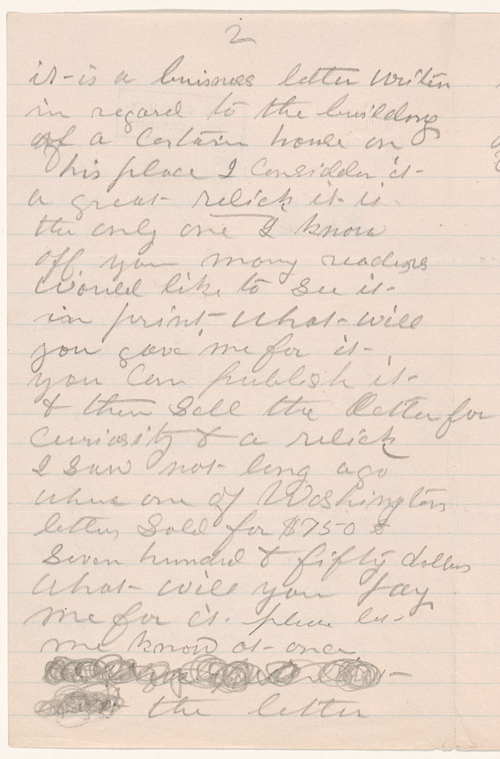 2
it is a buisness letter written
in regard to the building
of a certain house on
his place I considder it
a great relick it is
the only one I know
off you many readers
would like to see it
in print what will
you gave me for it
you can publish it
& then sell the letter for
curiosity & a relick
I saw not long ago
where one of Washington
letters sold for $750
seven hundred & fifty dollars
what will you pay
me for it. please let
me know at once
the letter